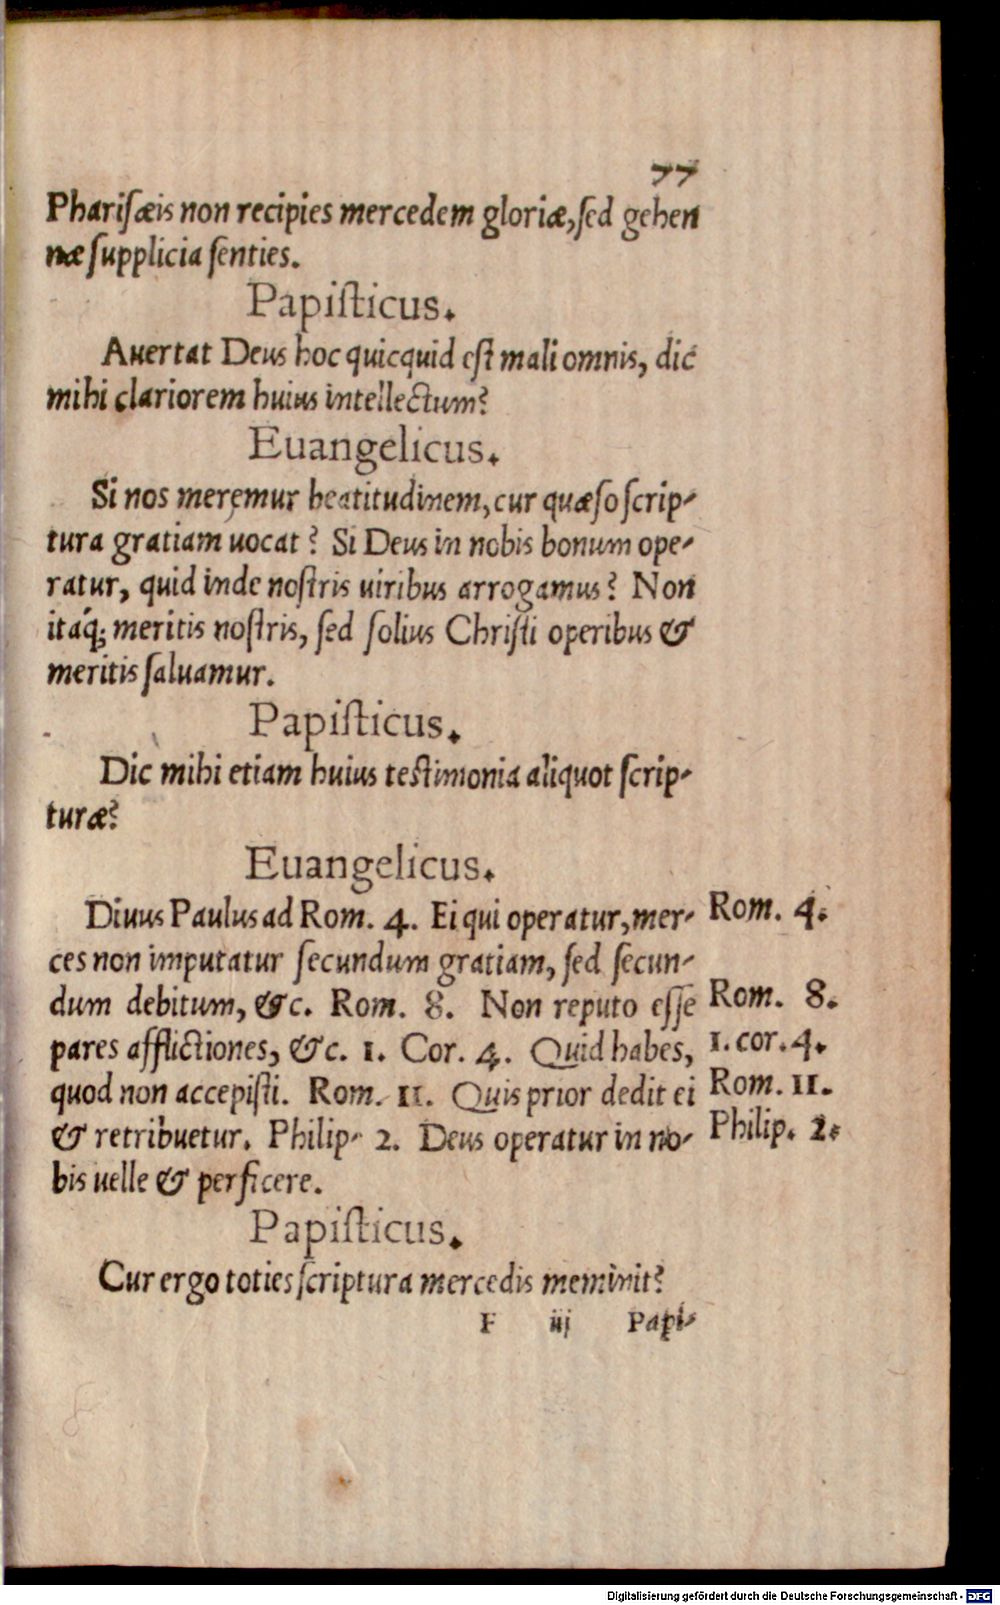 77
Phariſæis non recipies mercedem gloriæ, ſed gehen
næ ſupplicia ſenties.
Papiſticus.
Auertat Deus hoc quicquid eſt mali omnis, dic
mihi clariorem huius intellectum?
Euangelicus.
Si nos meremur beatitudinem, cur quæſo ſcrip-
tura gratiam uocat? Si Deus in nobis bonum ope-
ratur, quid inde noſtris uiribus arrogamus? Non
itáq; meritis noſtris, ſed ſolius Chriſti operibus &
meritis ſaluamur.
Papiſticus.
Dic mihi etiam huius teſtimonia aliquot ſcrip-
turæ?
Euangelicus.
Diuus Paulus ad Rom. 4. Ei qui operatur, mer- Rom. 4.
ces non imputatur ſecundum gratiam, ſed ſecun-
dum debitum, &c. Rom. 8. Non reputo eſſe Rom. 8.
pares afflictiones, &c. 1. Cor. 4. Quid habes, 1. cor. 4.
quod non accepiſti. Rom. 11. Quis prior dedit ei Rom. 11.
& retribuetur. Philip- 2. Deus operatur in no- Philip. 2.
bis uelle & perficere.
Papiſticus.
Cur ergo toties ſcriptura mercedis meminit?
F iij Papi-
Digitalisierung gefördert durch die Deutsche Forschungsgemeinschaft - DFG